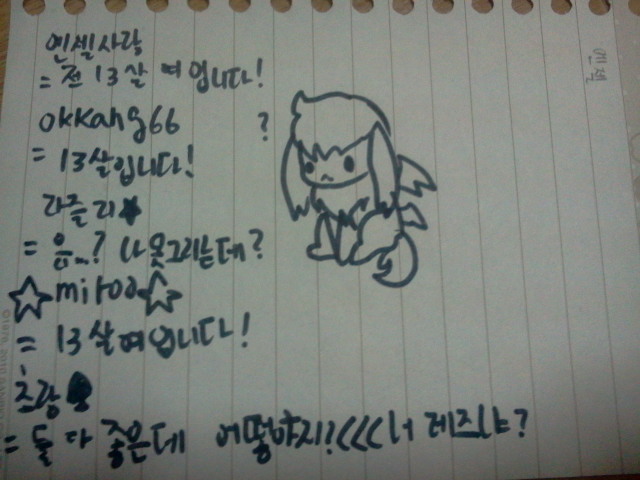 엔젤사랑
= 전 13살 여 입니다!
okkang66
?
= 13살입니다!
라즐리★
= 음...? 나 못그리는데?
☆miroo☆
= 13살여입니다!
초랑
= 둘 다 좋은데 어떻하지?<<<너 레즈냐?